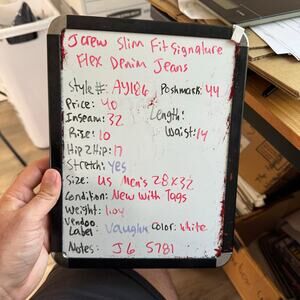 Jcrew Slim Fit Signature
Flex Denim Jeans
Style#: AY186 Poshmark: 44
Price: 40 Length:
Inseam: 32 Waist: 14
Rise: 10
Hip2Hip: 17
Stretch: yes
Size: US Men's 28x32
Condition: New With Tags
Weight: 1.04
Vendoo Label: Vaughn Color: White
Notes: J6 5781